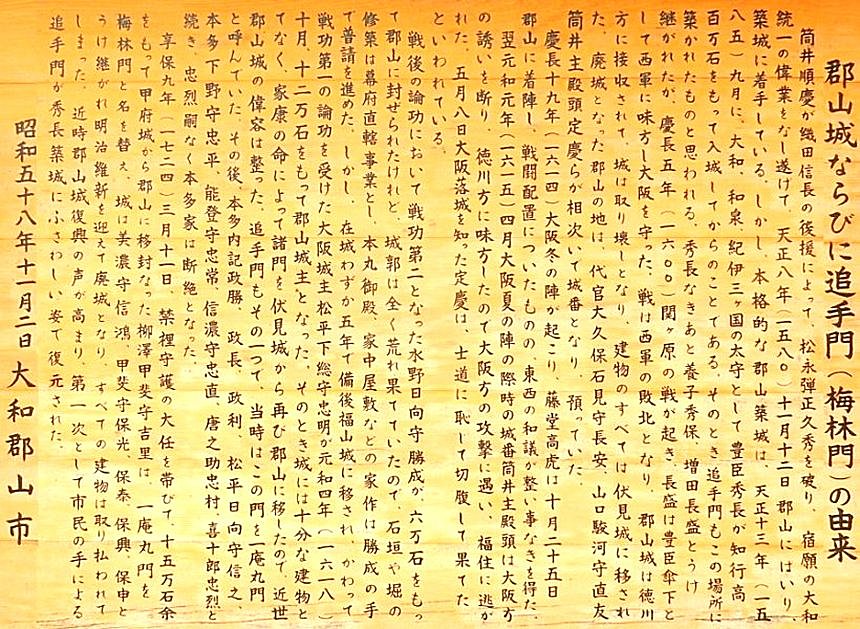 郡山城ならびに追手門(梅林門)の由来
筒井順慶が織田信長の後援によって、松永弾正久秀を破り、宿願の大和
統一の偉業をなし遂げて、天正八年(一五八〇)十一月十二日郡山にはいり、
築城に着手している。しかし、本格的な郡山築城は、天正十三年(一五
八五)九月に、大和 和泉 紀伊三ヶ国の太守として豊臣秀長が知行高
百万石をもって入城してからのことである。そのとき追手門もこの場所に
築かれたものと思われる。秀長なきあと養子秀保、増田長盛とうけ
継がれたが、慶長五年(一六〇〇)関ヶ原の戦が起き、長盛は豊臣傘下と
して西軍に味方し大阪を守った、戦は西軍の敗北となり、郡山城は徳川
方に接収されて、城は取り壊しとなり、建物のすべては伏見城に移され
た。廃城となった郡山の地は、代官大久保石見守長安、山口駿河守直友
筒井主殿頭定慶らが相次いで城番となり、預っていた。
慶長十九年(一六一四)大阪冬の陣が起こり、藤堂高虎は十月二十五日
郡山に着陣し、戦闘配置についたものの、東西の和議が整い事なきを得た。
翌元和元年(一六一五)四月大阪夏の陣の際時の城番筒井主殿頭は大阪方
の誘いを断り、徳川方に味方したので大阪方の攻撃に遇い、福住に逃が
れた。五月八日大阪落城を知った定慶は、士道に恥じて切腹して果てた
といわれている。
戦後の論功において戦功第二となった水野日向守勝成が、六万石をもっ
て郡山に封ぜられたけれど、城郭は全く荒れ果てていたので、石垣や堀の
修築は幕府直轄事業とし、本丸御殿、家中屋敷などの家作は勝成の手
で普請を進めた。しかし、在城わずか五年で備後福山城に移され、かわって
戦功第一の論功を受けた大阪城主松平下総守忠明が元和四年(一六一八)
十月、十二万石をもって郡山城主となった。そのとき城には十分な建物と
てなく、家康の命によって諸門を伏見城から再び郡山に移したので、近世
郡山城の偉容は整った。追手門もその一つで、当時はこの門を一庵丸門
と呼んでいた。その後、本多内記政勝、政長、政利、松平日向守信之、
本多下野守忠平、能登守忠常、信濃守忠直、唐之助忠村、喜十郎忠烈と
続き、忠烈嗣なく本多家は断絶となった。
享保九年(一七二四)三月十一日、禁裡守護の大任を帯びて、十五万石余
をもって甲府城から郡山に移封なった柳澤甲斐守吉里は、一庵丸門を
梅林門と名を替え、城は美濃守信鴻、甲斐守保光、保泰、保興、保申と
うけ継がれ明治維新を迎えて廃城となり、すべての建物は取り払われて
しまった 近時郡山城復興の声が高まり、第一次として市民の手による
追手門が秀長築城にふさわしい姿で復元された。
昭和五十八年十一月二日 大和郡山市